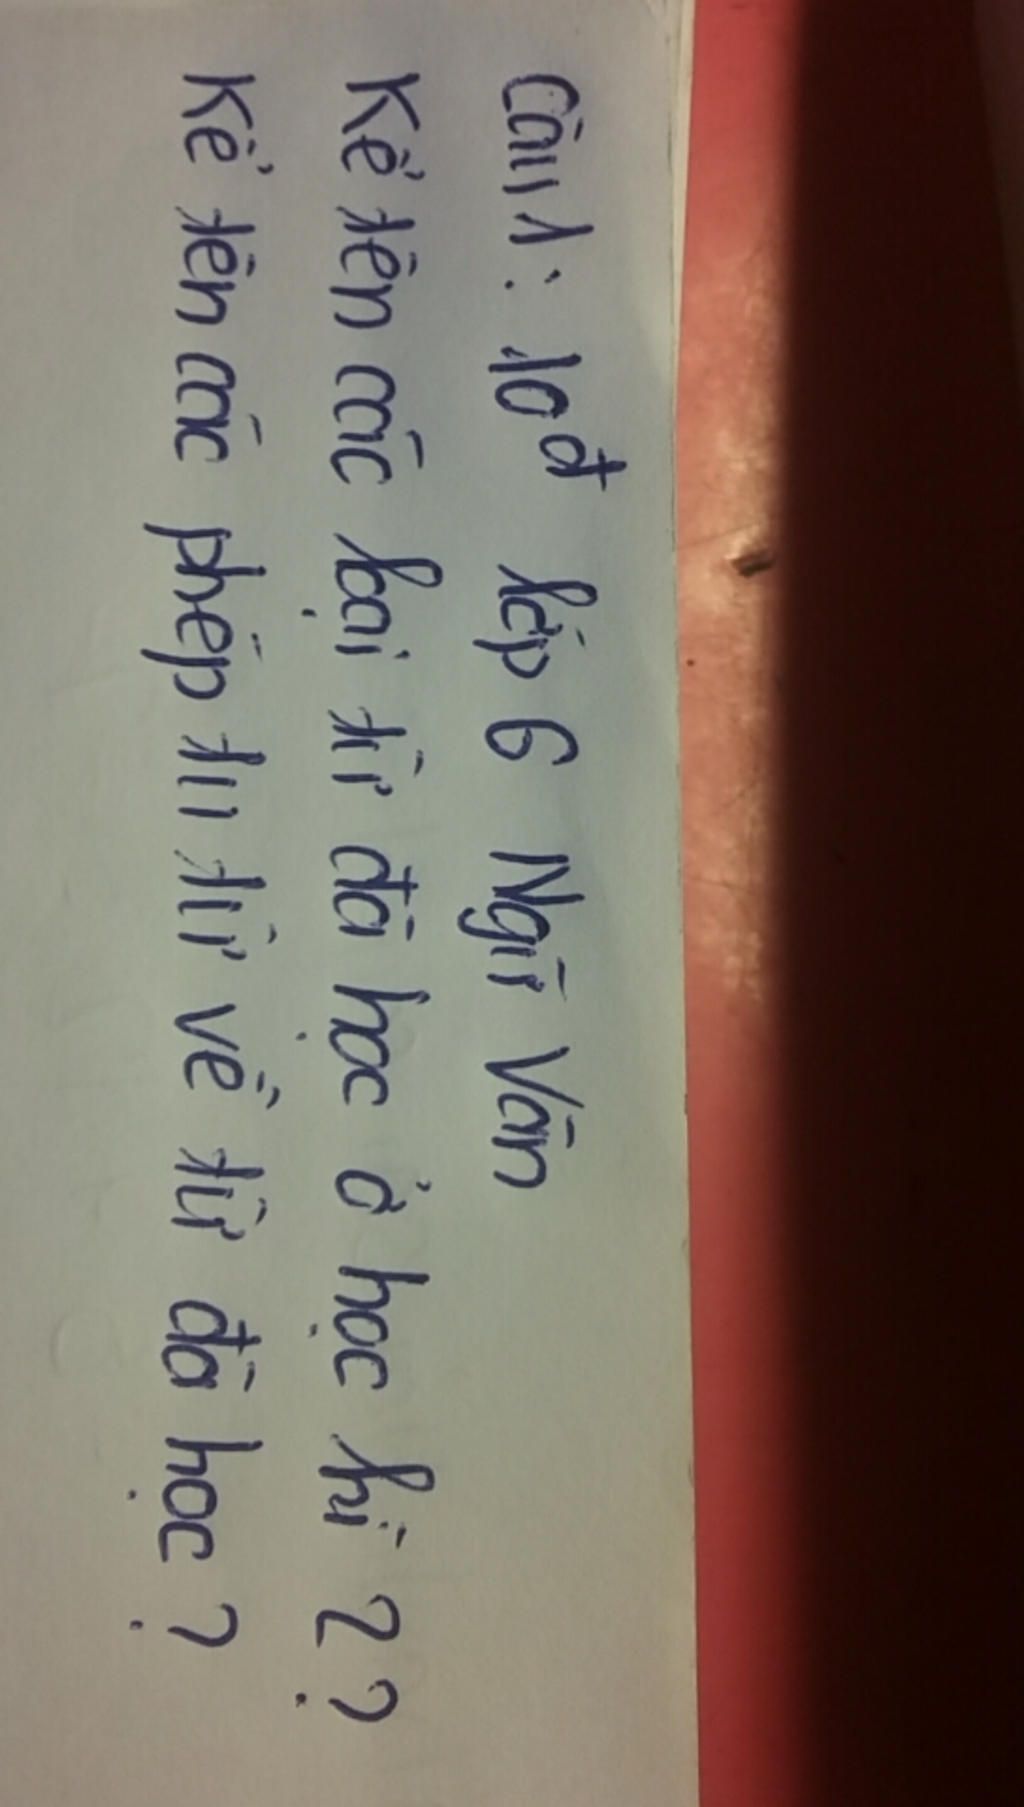 Câu 1: 10đ lớp 6 Ngữ Văn
Kể tên các loại từ đã học ở học kì 2?
Kể tên các phép tu từ về từ đã học?